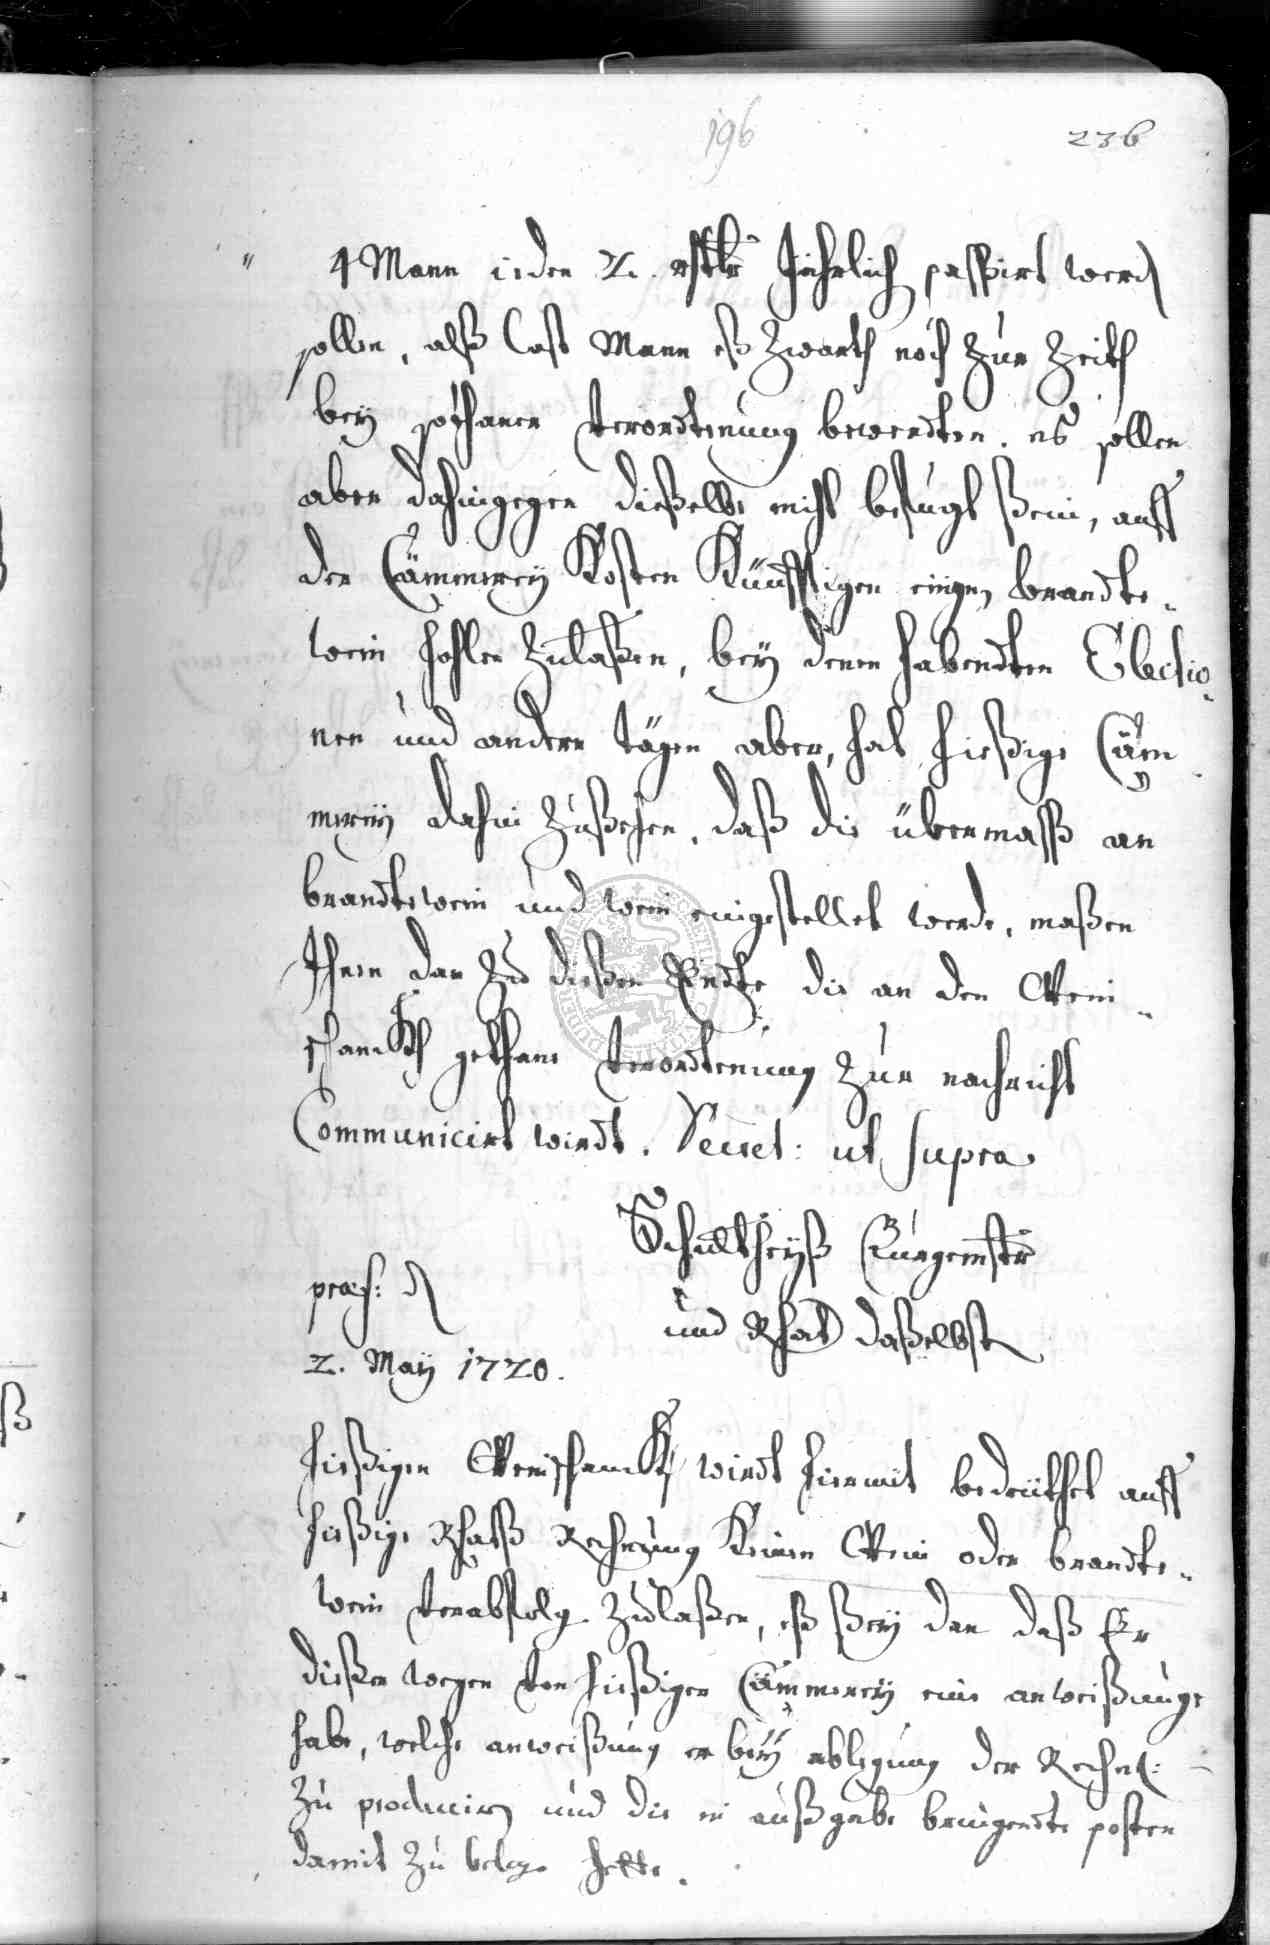 196
236
4 Mann ieden 2. rsthlr Jährlich passirt werden
sollen, alß last Mann eß Zwarth noch Zur Zeith
bey sothaner Verordtnung bewendten. es sollen
aber dahingegen dießelbe nicht befugt ßein, auff
der Cämmerey Kosten Künfftigen eingen brandte-
wein hohlen Zulaßen, bey denen habendten Electio-
nen und andern tägen aber, hat hießige Cäm-
merey dahin Zußehen, daß die übermasß an
brandtewein und wein eingestellet werde, maßen
Ihnen dan Zu dießem Endte die an den Wein-
schanckh gethane Verordtenung Zur nachricht
Communicirt wirdt. Secret: ut supra
Schultheyß Burgemstr
und Rhat daßelbst
præs: d
2. Maÿ 1720.
hießigen Weinschanckh wirdt hiermit bedeuthet auff
hießige Rhatß Rechnung Keinen Wein oder brandte-
wein Verabfolg. Zulaßen, eß ßey dan daß Er
dießer wegen Von hießiger Cämmerey eine anweißunge
habe, welche anweißung er beÿ ablegung der Rechnt:
Zu produciren und die in außgabe bringendte posten
damit Zu belege hette.